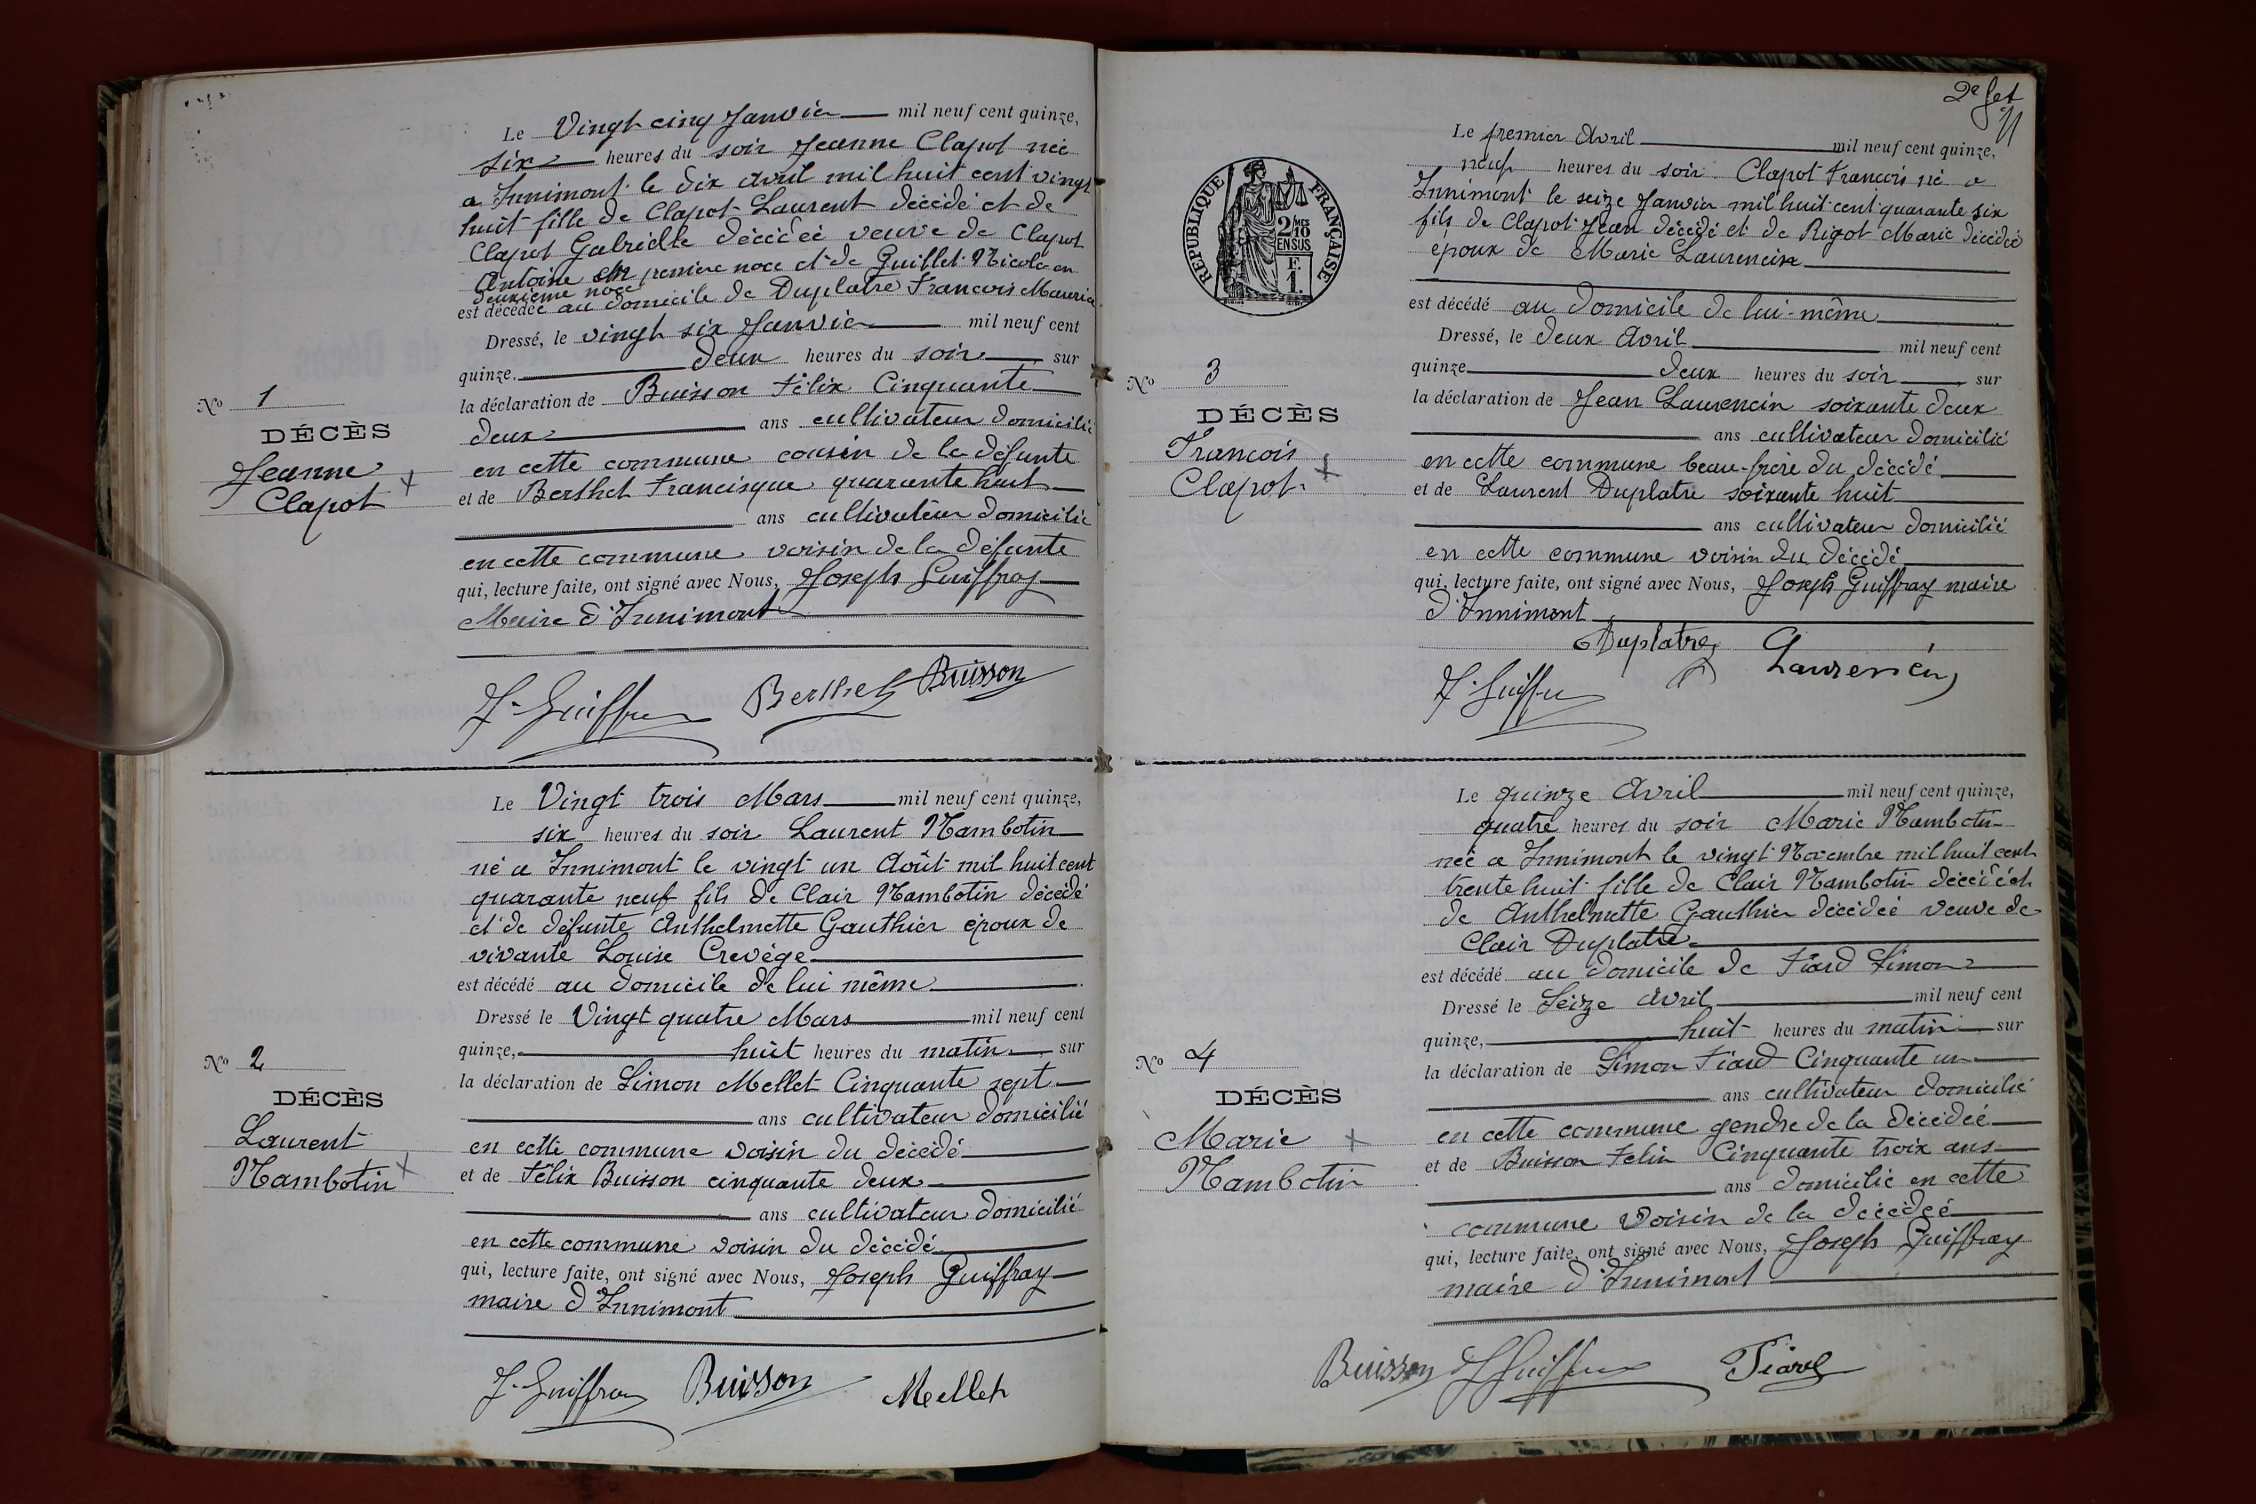 Le Vingt cinq Janvier mil neuf cent quinze,
six heures du soir Jeanne Clapot née
a Innimont le dix Avril mil huit cent vingt
huit fille de Clapot Laurent décédé et de
Clapot Gabrielle décédée veuve de Clapot
Antoine en premiere noce et de Guillet Nicolas en
deuxieme noce
est décédée au domicile de Duplatre Francois Maurice
Dressé, le vingt six Janvier mil neuf cent
quinze. deux heures du soir, sur
la déclaration de Buisson Félix Cinquante
deux ans cultivateur domicilié
en cette commune cousin de la défunte
et de Berthet Francisque quarante huit
ans cultivateur domicilié
en cette commune voisin de la défunte
qui, lecture faite, ont signé avec Nous, Joseph Guiffray
Maire d'Innimont
No 1
DÉCÈS
Jeanne
Clapot
J. Guiffray Berthet Buisson
Le Vingt trois Mars mil neuf cent quinze,
six heures du soir Laurent Mambotin
né a Innimont le vingt un Août mil huit cent
quarante neuf fils de Clair Mambotin décédé
et de défunte Anthelmette Gauthier époux de
vivante Louise Crevège
est décédé au domicile de lui même
Dressé le Vingt quatre Mars mil neuf cent
quinze, huit heures du matin, sur
la déclaration de Simon Mellet Cinquante sept
ans cultivateur domicilié
en cette commune voisin du décédé
et de Félix Buisson cinquante deux
ans cultivateur domicilié
en cette commune voisin du décédé
qui, lecture faite, ont signé avec Nous, Joseph Guiffray
maire d'Innimont
No 2
DÉCÈS
Laurent
Mambotin
J. Guiffray Buisson Mellet
2e
Le premier Avril mil neuf cent quinze,
neuf heures du soir Clapot Francois né a
Innimont le seize Janvier mil huit cent quarante six
fils de Clapot Jean décédé et de Rigot Marie décédée
epoux de Marie Laurencin
est décédé au domicile de lui-même
Dressé, le deux Avril mil neuf cent
quinze deux heures du soir, sur
la déclaration de Jean Laurencin soixante deux
ans cultivateur domicilié
en cette commune beau-frère du décédé
et de Laurent Duplatre soixante huit
ans cultivateur domicilié
en cette commune voisin du décédé
qui, lecture faite, ont signé avec Nous, Joseph Guiffray maire
d'Innimont
RÉPUBLIQUE FRANÇAISE
2 MES
10
EN SUS
F.
1.
No 3
DÉCÈS
Francois
Clapot
Duplatre Laurencin
J. Guiffray
Le quinze Avril mil neuf cent quinze,
quatre heures du soir Marie Mambotin
née a Innimont le vingt Novembre mil huit cent
trente huit fille de Clair Mambotin décédé et
de Anthelmette Gauthier décédée veuve de
Clair Duplatre
est décédé au domicile de Fiard Simon
Dressé le Seize Avril mil neuf cent
quinze, huit heures du matin, sur
la déclaration de Simon Fiard Cinquante un
ans cultivateur domicilié
en cette commune gendre de la décédée
et de Buisson Félix Cinquante trois ans
ans domicilié en cette
commune voisin de la décédée
qui, lecture faite, ont signé avec Nous, Joseph Guiffray
maire d'Innimont
No 4
DÉCÈS
Marie
Mambotin
Buisson J Guiffray Fiard